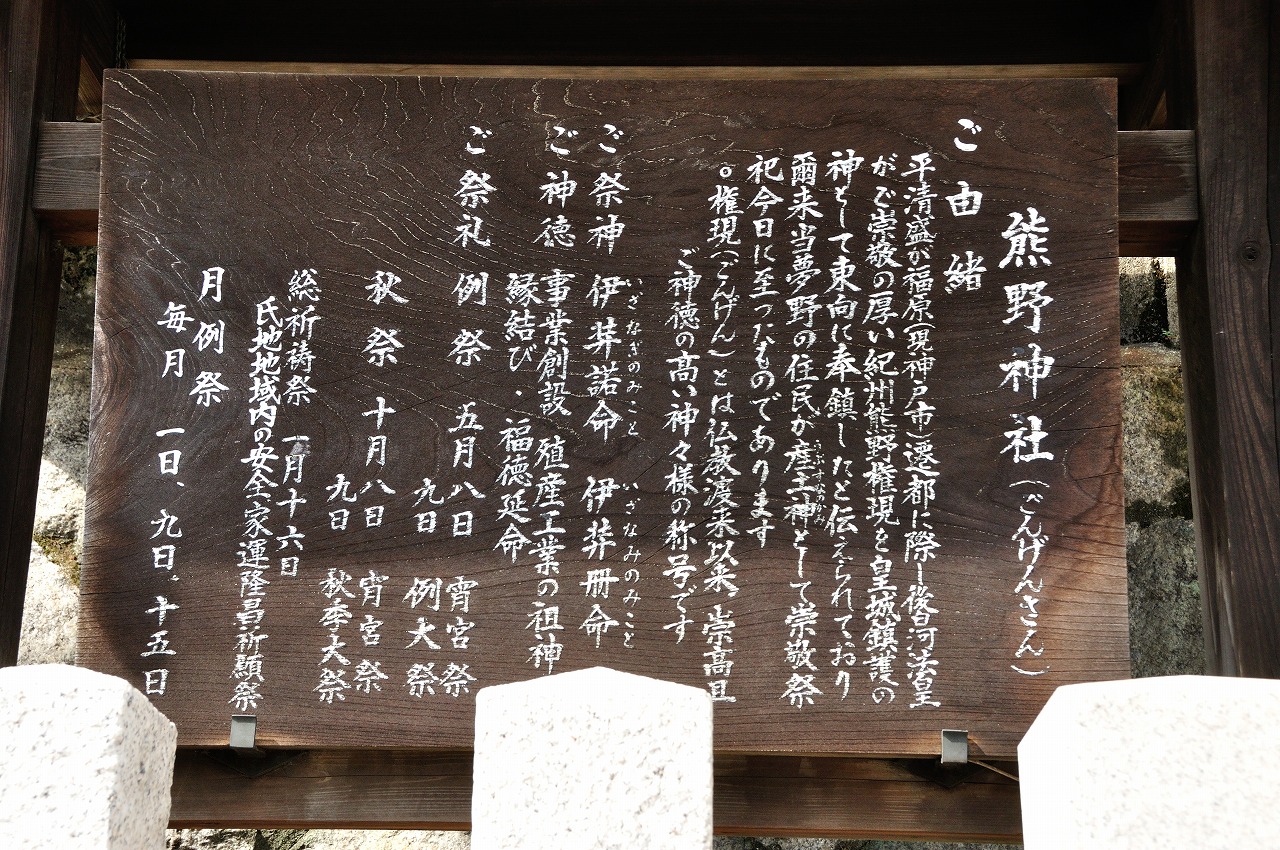 熊野神社(ごんげんさん)
ご由緒
平清盛が福原(現神戸市)遷都に際し後白河法皇
がご崇敬の厚い紀州熊野権現を皇城鎮護の
神として東向に奉鎮したと伝えられており
爾来当夢野の住民が産土神として崇敬祭
祀今日に至ったものであります
。権現(ごんげん)とは仏教渡来以来、崇高且
ご神徳の高い神々様の称号です
ご祭神 伊弉諾命 伊弉冊命
いざなぎのみこと いざなみのみこと
ご神徳 事業創設 殖産工業の祖神
縁結び・福徳延命
ご祭礼 例祭 五月八日 宵宮祭
九日 例大祭
秋祭 十月八日 宵宮祭
九日 秋季大祭
総祈祷祭 一月十六日
氏地地域内の安全家運隆昌祈願祭
月例祭
毎月 一日、九日、十五日